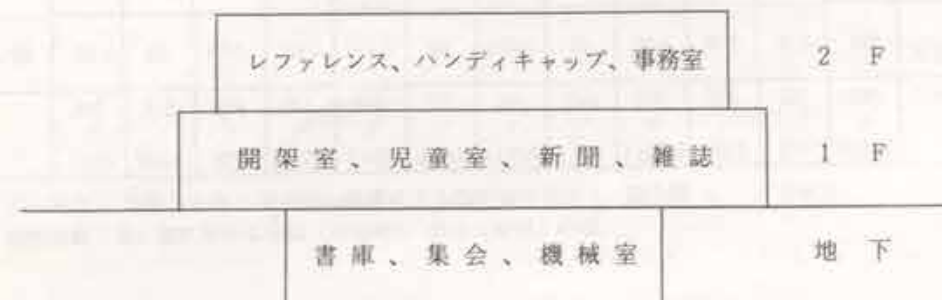 レファレンス、ハンディキャップ、事務室 2 F
開架室、児童室、新聞、雑誌 1 F
書庫、集会、機械室 地下